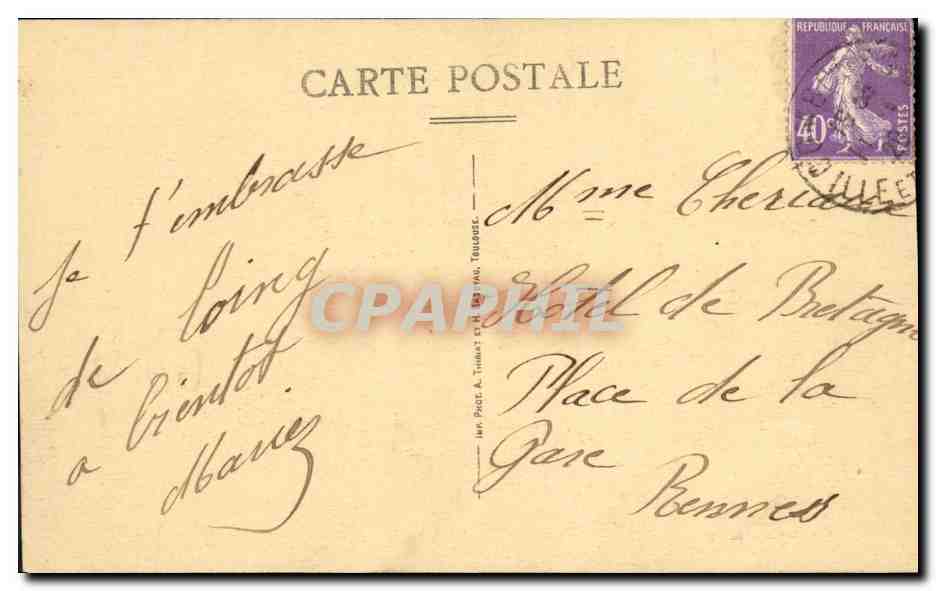 CARTE POSTALE
REPUBLIQUE FRANÇAISE
40c
POSTES
ILLE ET
je t'embrasse
de loing
a bientot
Marie
IMP. PHOT. A. THIRIAT ET H. BASUYAU, TOULOUSE.
Mme
Hotel de Bretagne
Place de la
Gare
Rennes
CPAPHIL